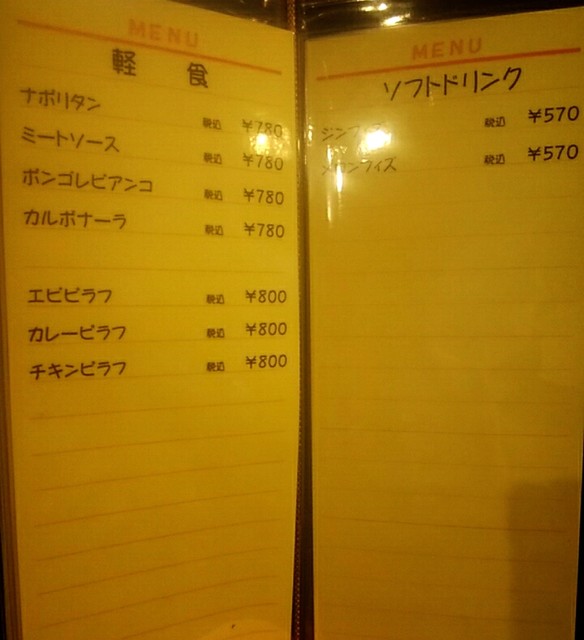 MENU
軽 食
ナポリタン 税込 ¥780
ミートソース 税込 ¥780
ボンゴレビアンコ 税込 ¥780
カルボナーラ 税込 ¥780
エビピラフ 税込 ¥800
カレーピラフ 税込 ¥800
チキンピラフ 税込 ¥800
MENU
ソフトドリンク
税込 ¥570
税込 ¥570